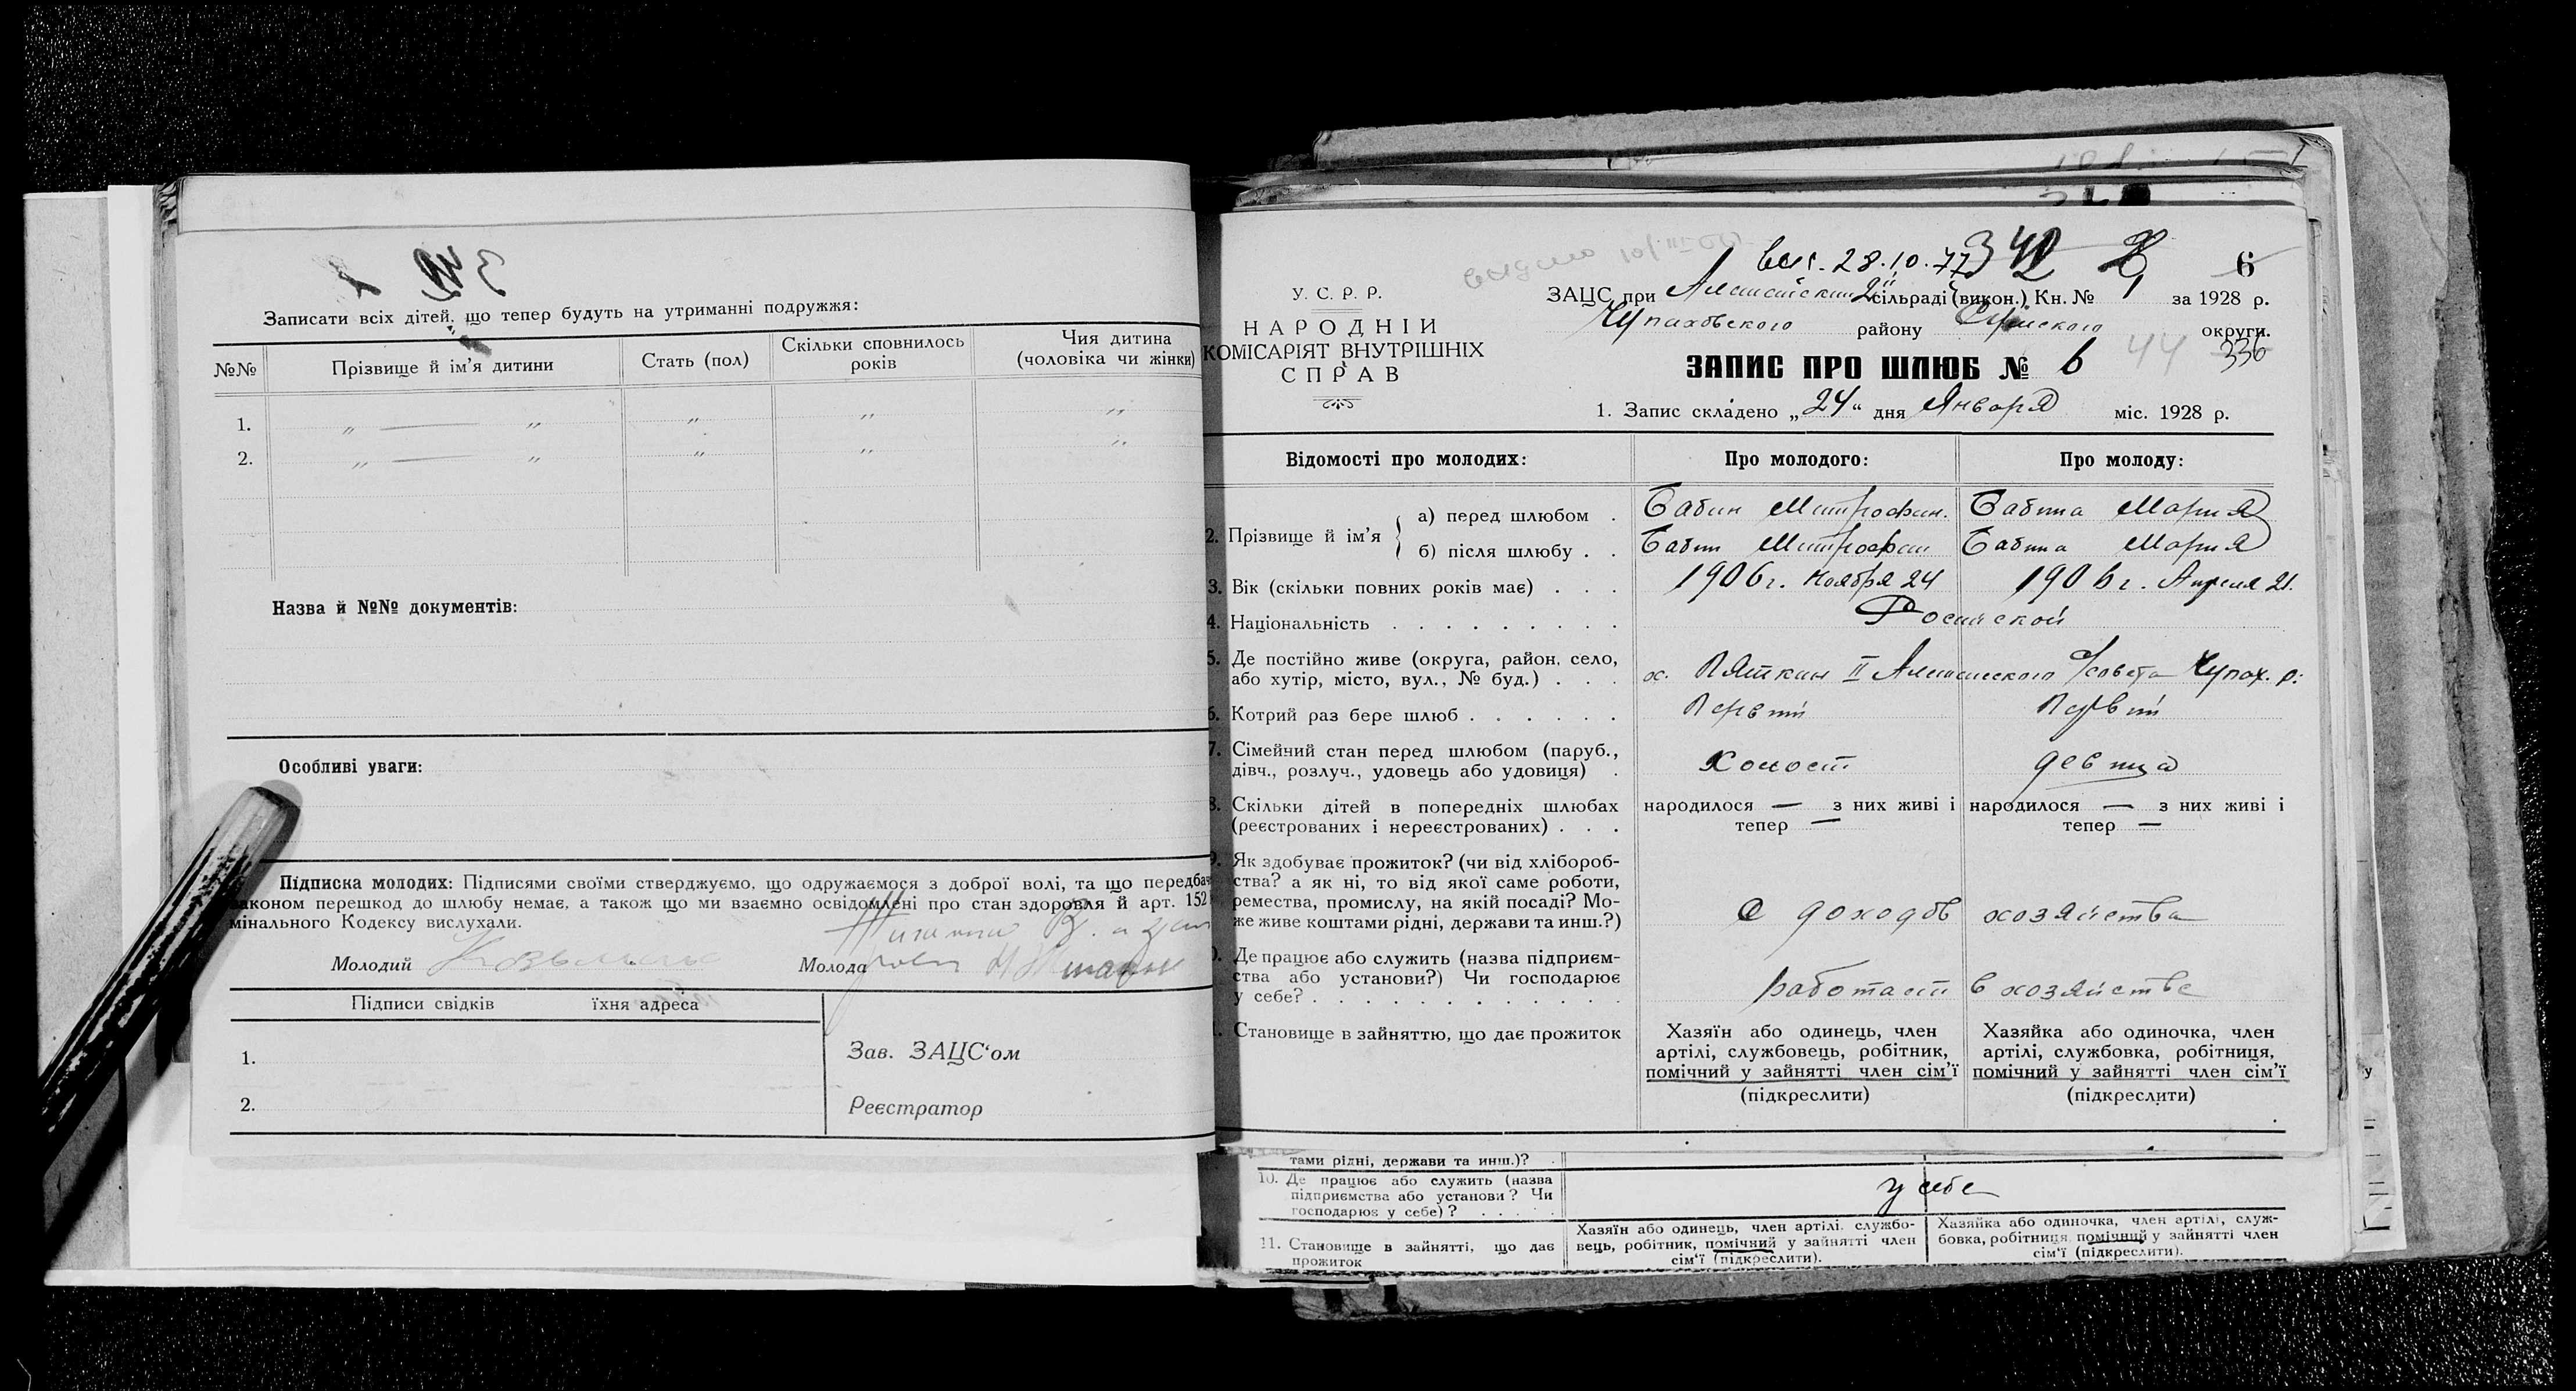 342
Записати всіх дітей, що тепер будуть на утриманні подружжя:
№№ Прізвище й ім'я дитини Стать (пол) Скільки сповнилось років Чия дитина (чоловіка чи жінки)
1. „ — „ „ „ „
2. „ — „ „ „ „
Назва й №№ документів:
Особливі уваги:
Підписка молодих: Підписями своїми стверджуємо, що одружаємося з доброї волі, та що передбач
законом перешкод до шлюбу немає, а також що ми взаємно освідомлені про стан здоровля й арт. 152
мінального Кодексу вислухали.
Молодий Молода
Підписи свідків їхня адреса
1.
2.
Зав. ЗАЦС‘ом
Реєстратор
28.10.77 342 6
У. С. Р. Р.
НАРОДНІЙ
КОМІСАРІЯТ ВНУТРІШНІХ
СПРАВ
ЗАЦС при 2й сільраді (викон.) Кн. № 1 за 1928 р.
Чупаховского району Сумского округи.
44 336
ЗАПИС ПРО ШЛЮБ № 6
1. Запис складено „24“ дня Января міс. 1928 р.
Відомості про молодих: Про молодого: Про молоду:
2. Прізвище й ім'я
а) перед шлюбом . Бабин Митрофан. Бабина Мария
б) після шлюбу . . Бабин Митрофан Бабина Мария
3. Вік (скільки повних років має) . . . 1906г. Ноября 24 1906г. Апреля 21.
4. Національність . . . . . . . . . Росийской
5. Де постійно живе (округа, район, село,
або хутір, місто, вул., № буд.) . . . х. Пяткин II с/совета Чупах. р.
6. Котрий раз бере шлюб . . . . . . Первый Первый
7. Сімейний стан перед шлюбом (паруб.,
дівч., розлуч., удовець або удовиця) . Холост девица
8. Скільки дітей в попередніх шлюбах
(реєстрованих і нереєстрованих) . . .
народилося — з них живі і
тепер —
народилося — з них живі і
тепер —
9. Як здобуває прожиток? (чи від хлібороб-
ства? а як ні, то від якої саме роботи,
ремества, промислу, на якій посаді? Мо-
же живе коштами рідні, держави та инш.?)
С доходов хозяйства
Де працює або служить (назва підприєм-
ства або установи?) Чи господарює
у себе? . . . . . . . . . . . .
работает в хозяйстве
Становище в зайняттю, що дає прожиток
Хазяїн або одинець, член
артілі, службовець, робітник,
помічний у зайнятті член сім'ї
(підкреслити)
Хазяйка або одиночка, член
артілі, службовка, робітниця,
помічний у зайнятті член сім'ї
(підкреслити)
тами рідні, держави та инш.)?
10. Де працює або служить (назва
підприємства або установи? Чи
господарює у себе)? . . . . .
у себе
11. Становище в зайнятті, що дає
прожиток
Хазяїн або одинець, член артілі, службо-
вець, робітник, помічний у зайнятті член
сім'ї (підкреслити).
Хазяйка або одиночка, член артілі, служ-
бовка, робітниця, помічний у зайнятті член
сім'ї (підкреслити).